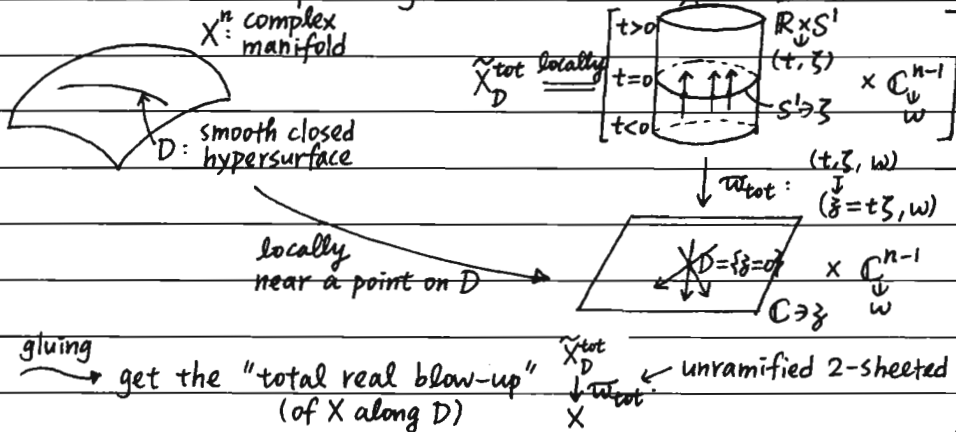 Xⁿ: complex
manifold
D: smooth closed
hypersurface
X̃_D^tot locally
t>0
t=0
t<0
ℝ×S¹
(t, ζ)
S¹∋ζ
× ℂ^{n-1}
w
ϖ_tot:
(t, ζ, w)
(z=tζ, w)
locally
near a point on D
D={z=0}
ℂ∋z
× ℂ^{n-1}
w
gluing
get the "total real blow-up"
(of X along D)
X̃_D^tot
ϖ_tot.
X
unramified 2-sheeted